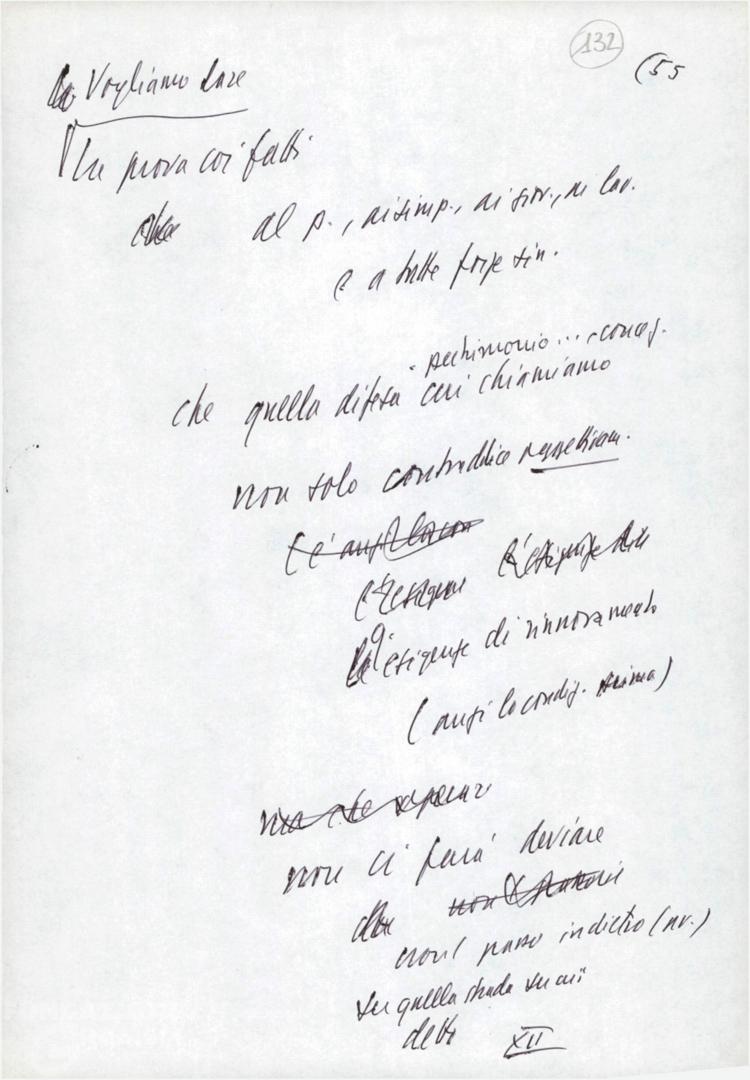 132
(55
Vogliamo dare
la prova coi fatti
che al p., ai simp., ai giov., ai lav.
e a tutte forze sin.
patrimonio ... concez.
che quella difesa cui chiamiamo
non solo contraddice
(è anzi
l'esigenze
esigenze di rinnovamento
(anzi la condiz. prima)
ma che sapremo
non ci farà deviare
non
non 1 passo indietro (nv.)
su quella strada su cui
detto XII